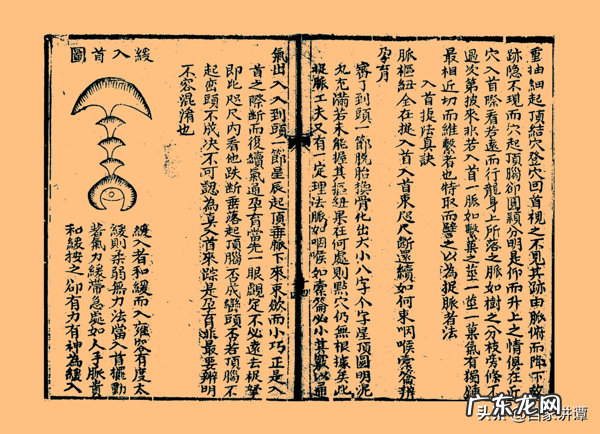 重抽細起頂結穴登穴回首視之不見其跡由脈俯而降下故
跡隱不現而穴起頂腦卻圓穎分明是仰而升上之情俱在
穴入首際看若遠而行龍身上所落之脈如樹之分枝旁條不
過次第披來非若入首一脈如繫菓之莖一莖一菓氣有獨鍾
最相近切而維繫者也特取而譬之以為捉脈者法
入首捉法真訣
脈樞紐全在捉入首入首束咫尺斷還續如何束咽喉處辨
孕育
審了到頭一節脫胎換骨化出大小八字个字星頂圓明
充滿若未能握其樞紐果在何處則點穴仍無根據矣此
捉脈工夫又有一定理法脈如咽喉如囊籥必小其竅以通
氣出入入到頭一節星辰起頂垂脈下來束歛而小巧正是入
首之際斷而復續氣道孕育當先一眼覷足不必遠去板擎
即此咫尺內看他跌斷垂落起頂腦否成巒頭否若頂腦不
起巒頭不成決不可認為真入首來踪是孕育非最要辨明
不容混淆也
緩入首圖
緩入者和緩而入雍容有度太
緩則柔弱無力法當入首擺動
若氣力緩帶急處如人手脈貴
和緩按之卻有力有神為緩入
头条 @百家讲谭
广东龙网